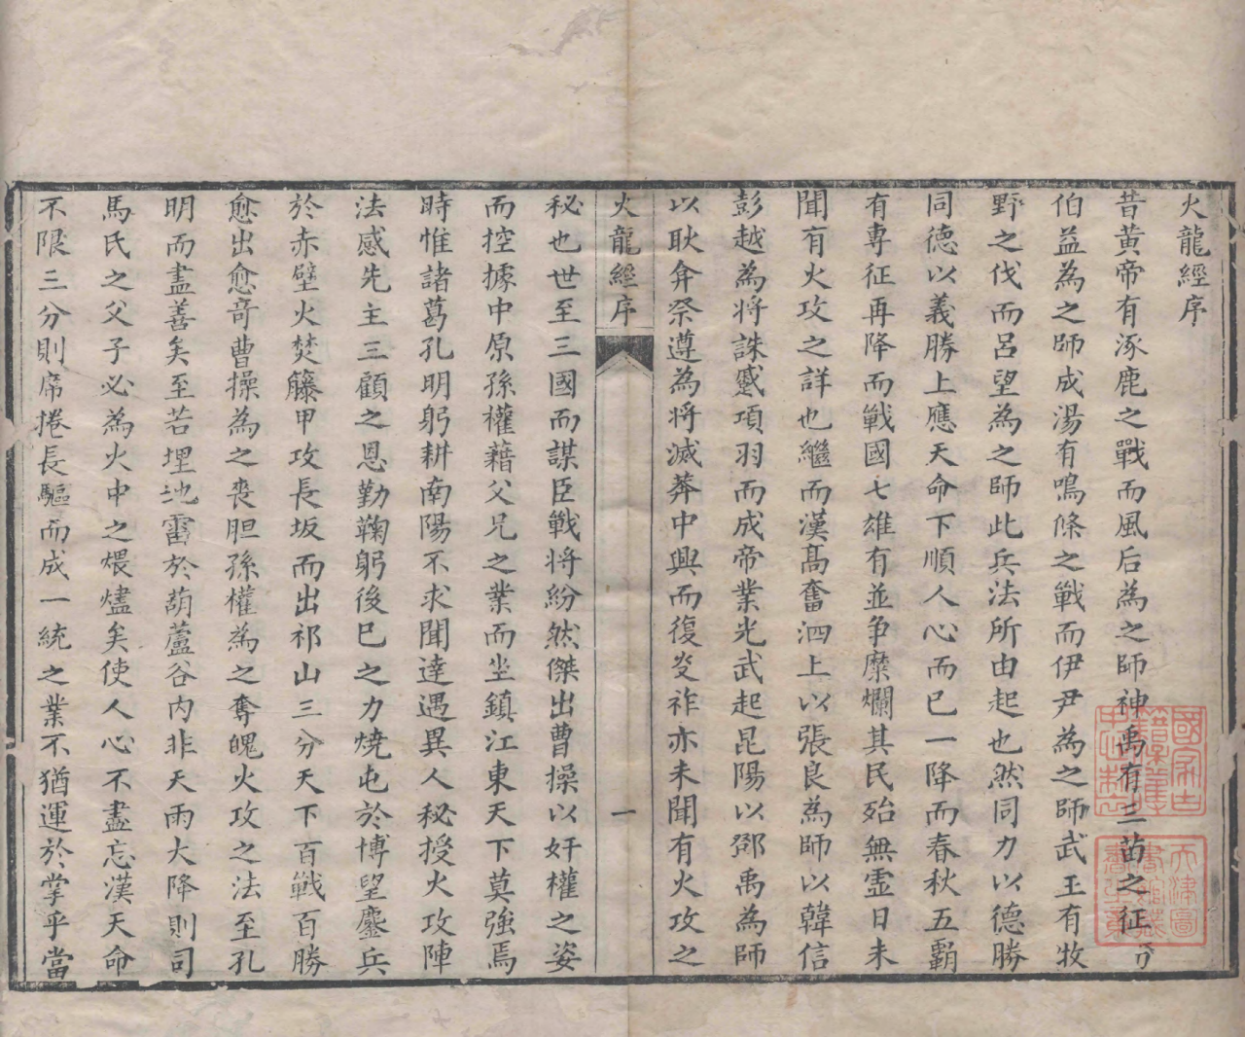 火龍經序
昔黃帝有涿鹿之戰而風后為之師神禹有三苗之征而
伯益為之師成湯有鳴條之戰而伊尹為之師武王有牧
野之伐而呂望為之師此兵法所由起也然同力以德勝
同德以義勝上應天命下順人心而已一降而春秋五霸
有專征再降而戰國七雄有並争糜爛其民殆無虛日未
聞有火攻之詳也繼而漢髙奮泗上以張良為師以韓信
彭越為将誅蹙項羽而成帝業光武起昆陽以鄧禹為師
以耿弇祭遵為将滅莽中興而復炎祚亦未聞有火攻之
火龍經序
一
秘也世至三國而謀臣戰将紛然傑出曹操以奸權之姿
而控據中原孫權藉父兄之業而坐鎮江東天下莫強焉
時惟諸葛孔明躬耕南陽不求聞達遇異人秘授火攻陣
法感先主三顧之恩勤鞠躬後已之力燒屯於博望鏖兵
於赤壁火焚籐甲攻長坂而出祁山三分天下百戰百勝
愈出愈竒曹操為之喪胆孫權為之奪魄火攻之法至孔
明而盡善矣至若埋地雷於葫蘆谷内非天雨大降則司
馬氏之父子必為火中之煨燼矣使人心不盡忘漢天命
不限三分則席捲長驅而成一統之業不猶運於掌乎當